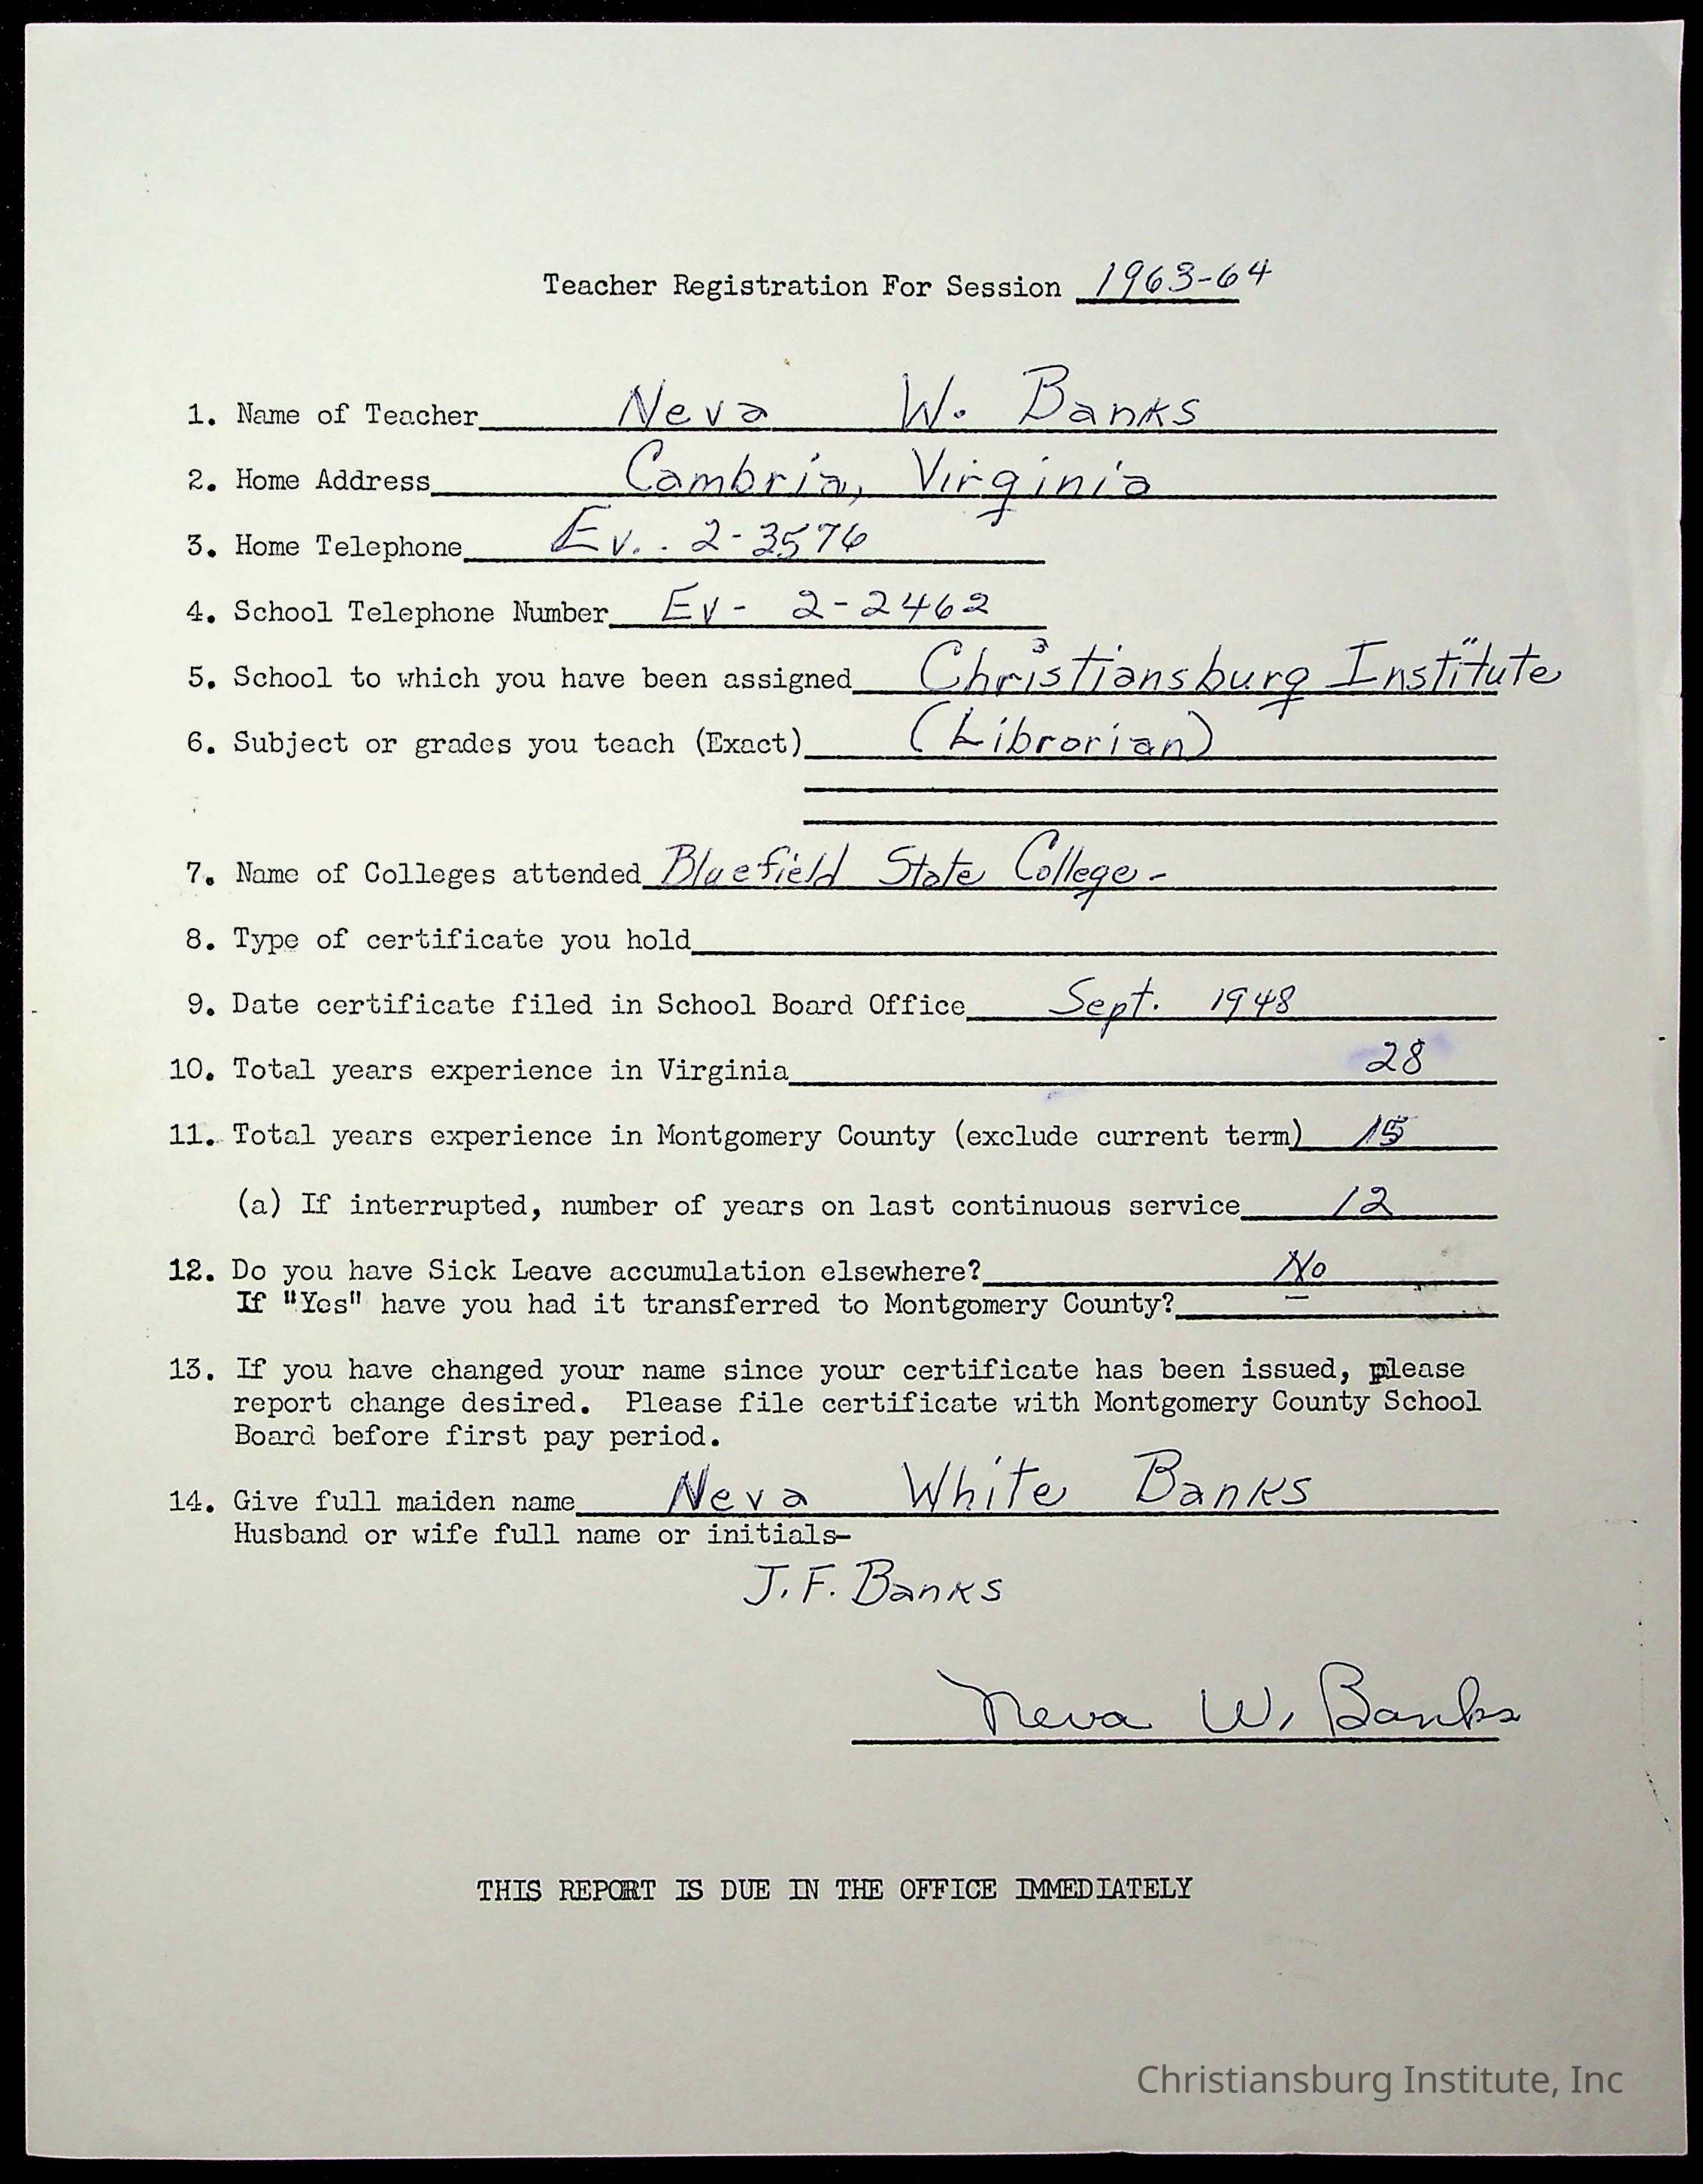 Teacher Registration For Session 1963-64
1. Name of Teacher Neva W. Banks
2. Home Address Cambria, Virginia
3. Home Telephone Ev. . 2-3576
4. School Telephone Number Ev- 2-2462
5. School to which you have been assigned Christiansburg Institute
6. Subject or grades you teach (Exact) (Librarian)
7. Name of Colleges attended Bluefield State College-
8. Type of certificate you hold
9. Date certificate filed in School Board Office Sept. 1948
10. Total years experience in Virginia 28
11. Total years experience in Montgomery County (exclude current term) 15
(a) If interrupted, number of years on last continuous service 12
12. Do you have Sick Leave accumulation elsewhere? No
If "Yes" have you had it transferred to Montgomery County?
13. If you have changed your name since your certificate has been issued, please
report change desired. Please file certificate with Montgomery County School
Board before first pay period.
14. Give full maiden name Neva White Banks
Husband or wife full name or initials-
J.F. Banks
Neva W. Banks
THIS REPORT IS DUE IN THE OFFICE IMMEDIATELY
Christiansburg Institute, Inc